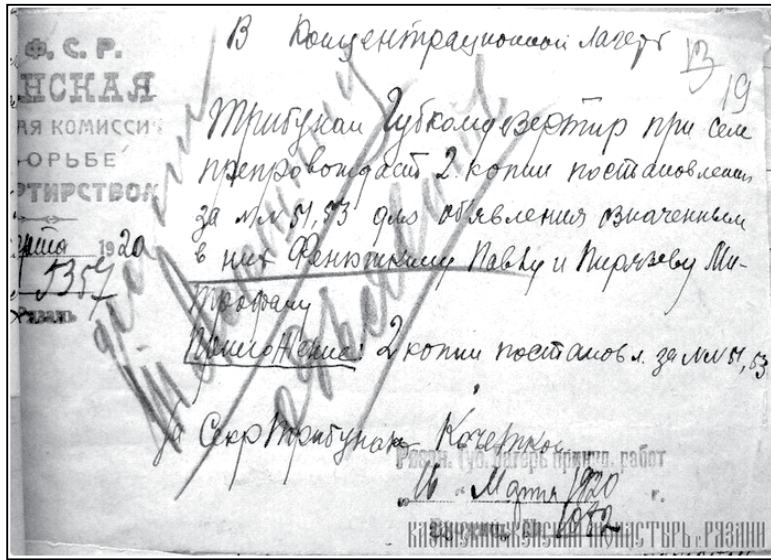 Ф. С. Р.
НСКАЯ
АЯ КОМИССИ
ОРЬБЕ
РТИРСТВОМ
1920
5357
Рязань
В Концентрационный лагерь
13
19
Трибунал Губкомдезертир при сем
препровождает 2 копии постановления
за №№ 51, 53 для объявления означенным
в них Павлу и Ми-
трофану
Приложение: 2 копии постановл. за №№ 51, 53
За Секр Трибунала
Рязан. Губ. Лагерь Принуд. работ
„16 " Марта 1920 г.
1072
КАЗАНСКИЙ ЖЕНСКИЙ МОНАСТЫРЬ г. РЯЗАНИ